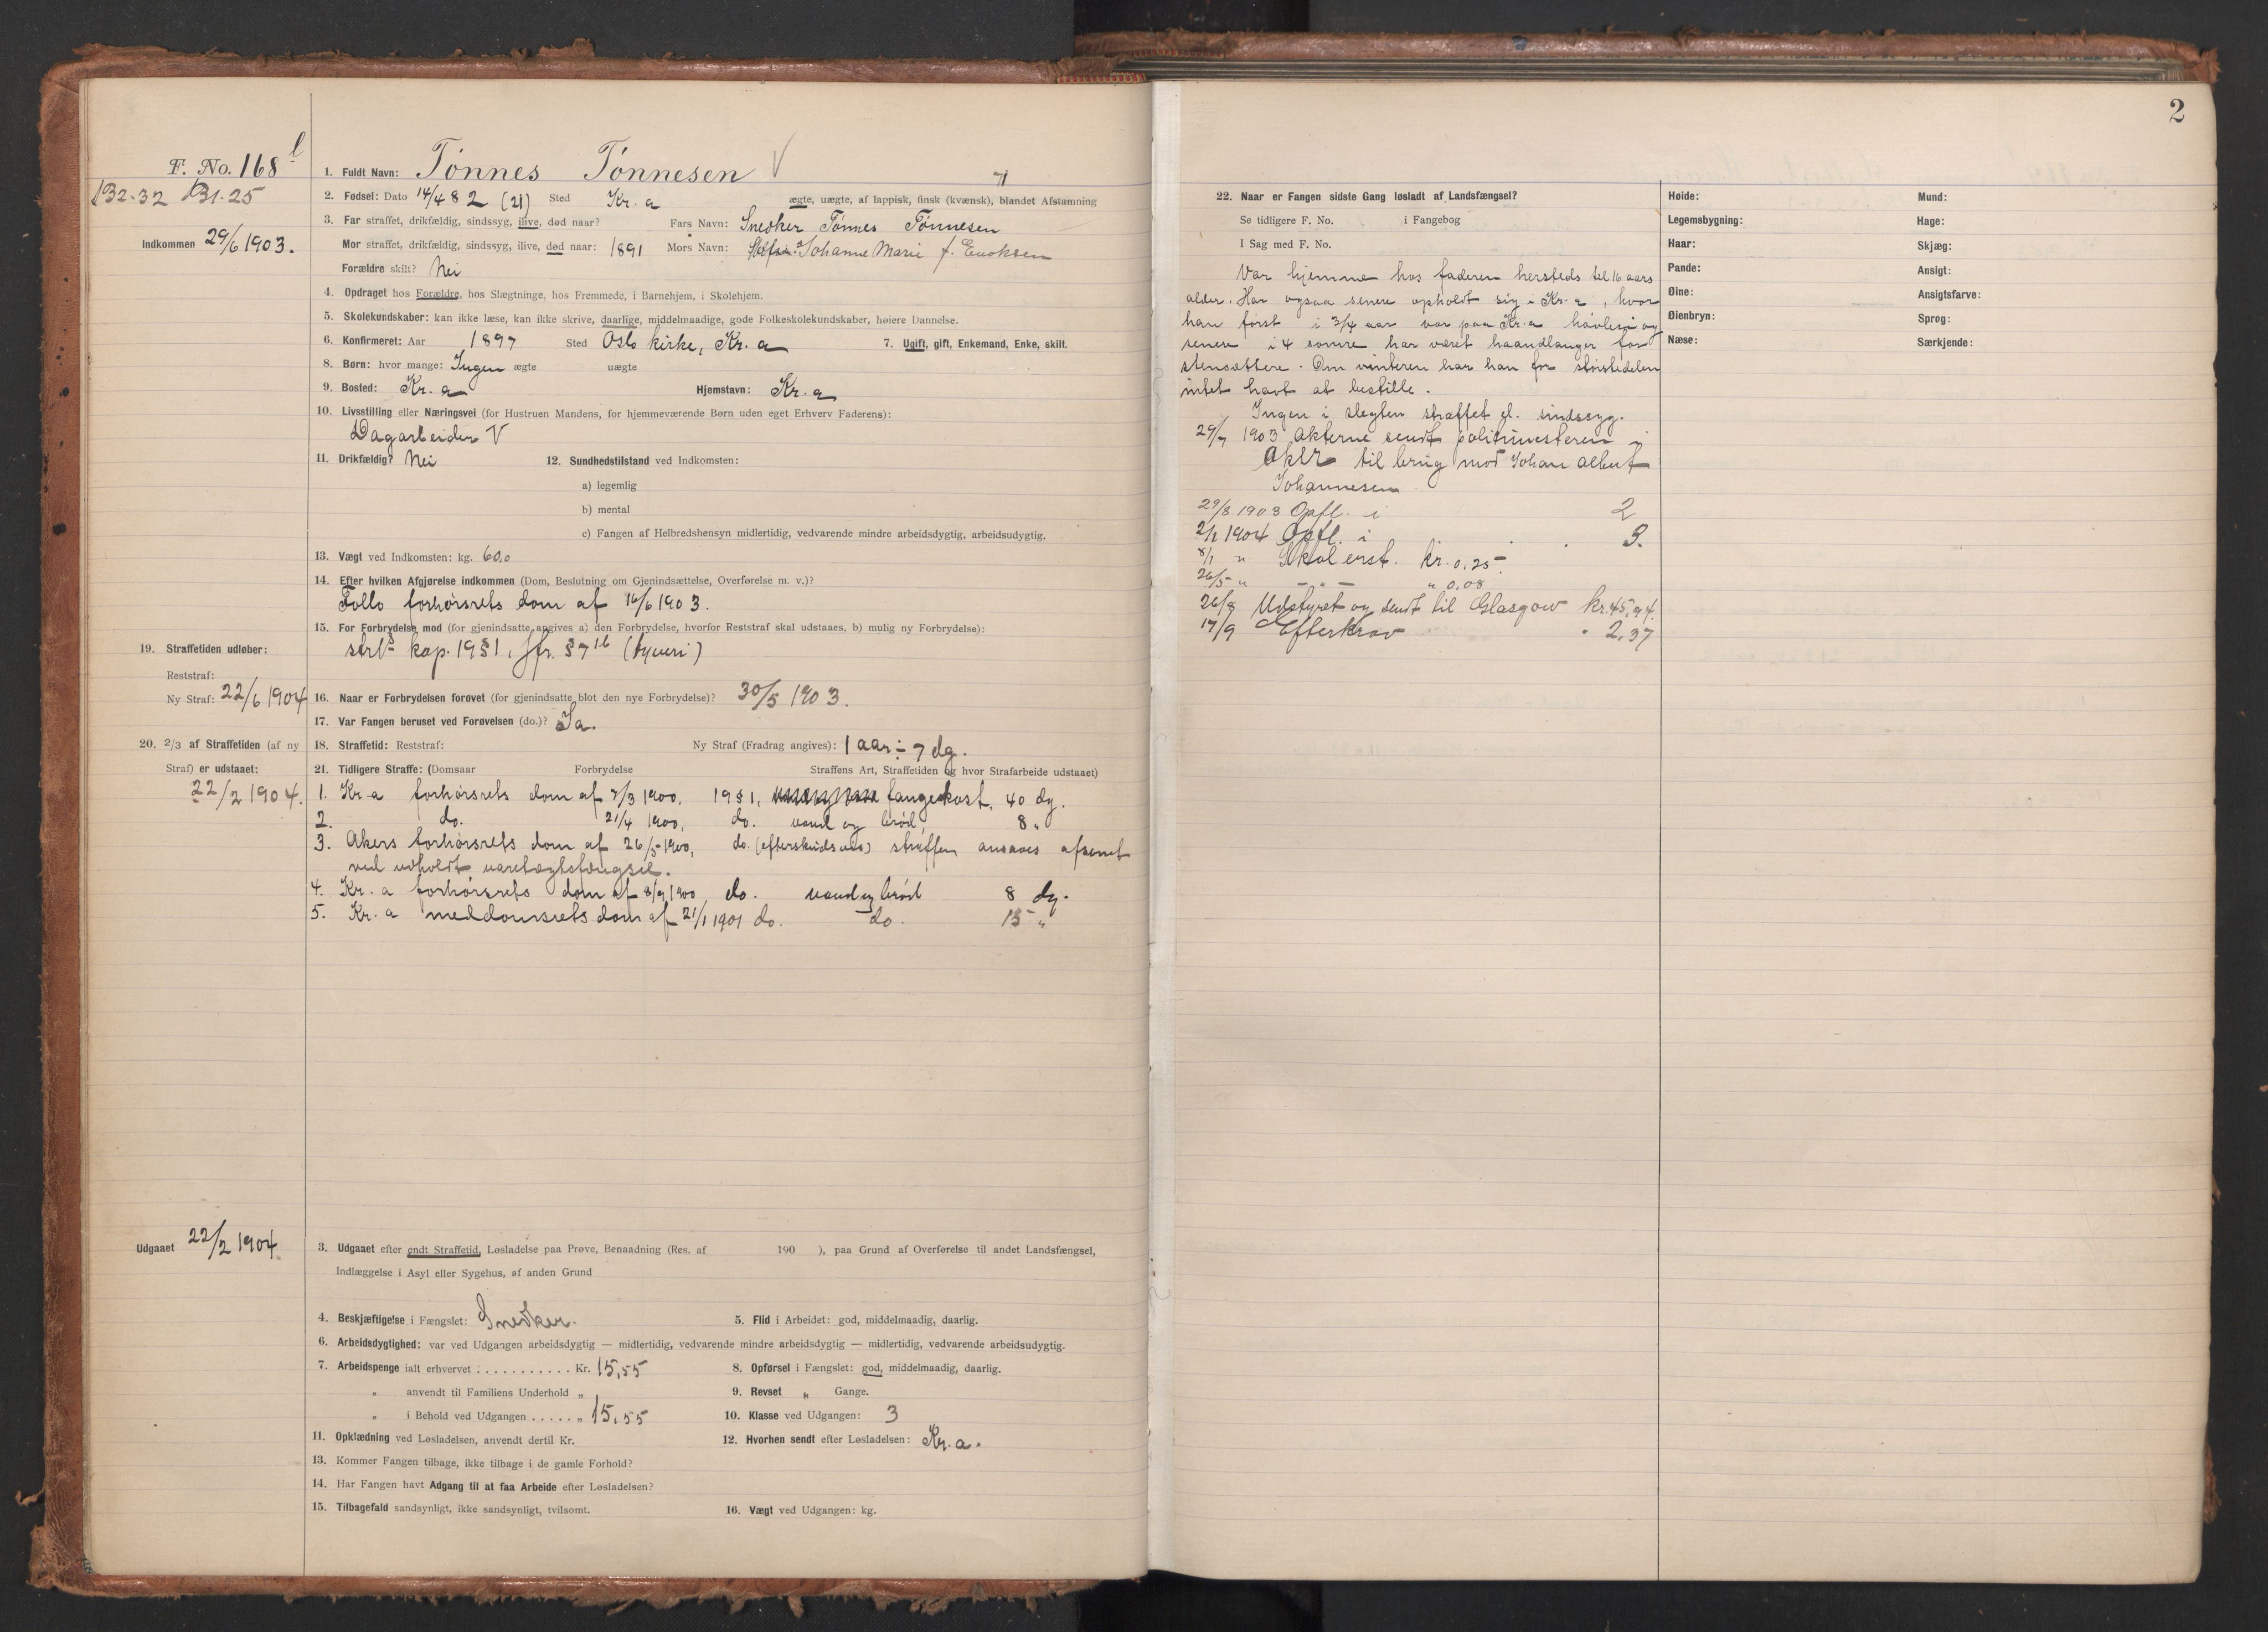 2
F. No. 168 l
132-32 131-25
Indkommen 29/6 1903.
1. Fuldt Navn: Tønnes Tønnesen V
71
2. Fødsel: Dato 14/4 82 (21) Sted Kr.a ægte, uægte, af lappisk, finsk (kvænsk), blandet Afstamning
3. Far straffet, drikfældig, sindssyg, ilive, død naar? Fars Navn: Snedker Tønnes Tønnesen
Mor straffet, drikfældig, sindssyg, ilive, død naar: 1891 Mors Navn: Johanne Marie f. Enoksen
Forældre skilt? Nei
4. Opdraget hos Forældre, hos Slægtninge, hos Fremmede, i Barnehjem, i Skolehjem.
5. Skolekundskaber: kan ikke læse, kan ikke skrive, daarlige, middelmaadige, gode Folkeskolekundskaber, høiere Dannelse.
6. Konfirmeret: Aar 1897 Sted Oslo kirke, Kr.a 7. Ugift, gift, Enkemand, Enke, skilt.
8. Børn: hvor mange: Ingen ægte uægte
9. Bosted: Kr.a Hjemstavn: Kr.a
10. Livsstilling eller Næringsvei (for Hustruen Mandens, for hjemmeværende Børn uden eget Erhverv Faderens):
Dagarbeider V
11. Drikfældig? Nei 12. Sundhedstilstand ved Indkomsten:
a) legemlig
b) mental
c) Fangen af Helbredshensyn midlertidig, vedvarende mindre arbeidsdygtig, arbeidsudygtig.
13. Vægt ved Indkomsten: kg. 60,0
14. Efter hvilken Afgjørelse indkommen (Dom, Beslutning om Gjenindsættelse, Overførelse m. v.)?
Follo forhørsrets dom af 16/6 1903.
15. For Forbrydelse mod (for gjenindsatte angives a) den Forbrydelse, hvorfor Reststraf skal udstaaes, b) mulig ny Forbrydelse):
kap. 19 § 1, jfr. § 7 (tyveri)
19. Straffetiden udløber:
Reststraf:
Ny Straf: 22/6 1904
16. Naar er Forbrydelsen forøvet (for gjenindsatte blot den nye Forbrydelse)? 30/5 1903.
17. Var Fangen beruset ved Forøvelsen (do.)? Ja.
20. 2/3 af Straffetiden (af ny
Straf) er udstaaet:
22/2 1904.
18. Straffetid: Reststraf: Ny Straf (Fradrag angives): 1 aar ÷ 7 dg.
21. Tidligere Straffe: (Domsaar Forbrydelse Straffens Art, Straffetiden og hvor Strafarbeide udstaaet)
1. Kr.a forhørsrets dom af 7/3 1900, 19 § 1, fangekost, 40 dg.
2. do. 21/4 1900, do. vand og brød, 8 "
3. Akers forhørsrets dom af 26/5 1900, do. (efterskudsvis) straffen ansaaes afsonet
ved udholdt varetægtsfængsel.
4. Kr.a forhørsrets dom af 8/9 1900 do. vand og brød 8 dg.
5. Kr.a meddomsrets dom af 21/1 1901 do. do. 15 "
Udgaaet 22/2 1904
3. Udgaaet efter endt Straffetid, Løsladelse paa Prøve, Benaadning (Res. af 190 ), paa Grund af Overførelse til andet Landsfængsel,
Indlæggelse i Asyl eller Sygehus, af anden Grund
4. Beskjæftigelse i Fængslet: Snedker. 5. Flid i Arbeidet: god, middelmaadig, daarlig.
6. Arbeidsdygtighed: var ved Udgangen arbeidsdygtig — midlertidig, vedvarende mindre arbeidsdygtig — midlertidig, vedvarende arbeidsudygtig.
7. Arbeidspenge ialt erhvervet . . . . . . . . . . . Kr. 15,55 8. Opførsel i Fængslet: god, middelmaadig, daarlig.
" anvendt til Familiens Underhold " 9. Revset " Gange.
" i Behold ved Udgangen . . . . . " 15,55 10. Klasse ved Udgangen: 3
11. Opklædning ved Løsladelsen, anvendt dertil Kr. 12. Hvorhen sendt efter Løsladelsen: Kr.a.
13. Kommer Fangen tilbage, ikke tilbage i de gamle Forhold?
14. Har Fangen havt Adgang til at faa Arbeide efter Løsladelsen?
15. Tilbagefald sandsynligt, ikke sandsynligt, tvilsomt. 16. Vægt ved Udgangen: kg.
22. Naar er Fangen sidste Gang løsladt af Landsfængsel?
Se tidligere F. No. i Fangebog
I Sag med F. No.
Var hjemme hos faderen hersteds til 16 aars
alder. Har ogsaa senere opholdt sig i Kr.a, hvor
han først i 3/4 aar var paa Kr.a høvleri og
senere i 4 somre har været haandlanger for
stensættere. Om vinteren har han for størstedelen
intet havt at bestille.
Ingen i slegten straffet el. sindssyg.
29/7 1903 Akterne sendt politimesteren i
Aker til brug mod Johan Albert
Johannesen
29/8 1903 Opfl. i 2
2/1 1904 Opfl. i 3.
8/1 " Skol erst. kr. 0,25
26/5 " — " — " 0,08
26/8 Udstyret og sendt til Glasgow kr. 45,94.
17/9 Efterkrav " 2,37
Høide: Mund:
Legemsbygning: Hage:
Haar: Skjæg:
Pande: Ansigt:
Øine: Ansigtsfarve:
Øienbryn: Sprog:
Næse: Særkjende: